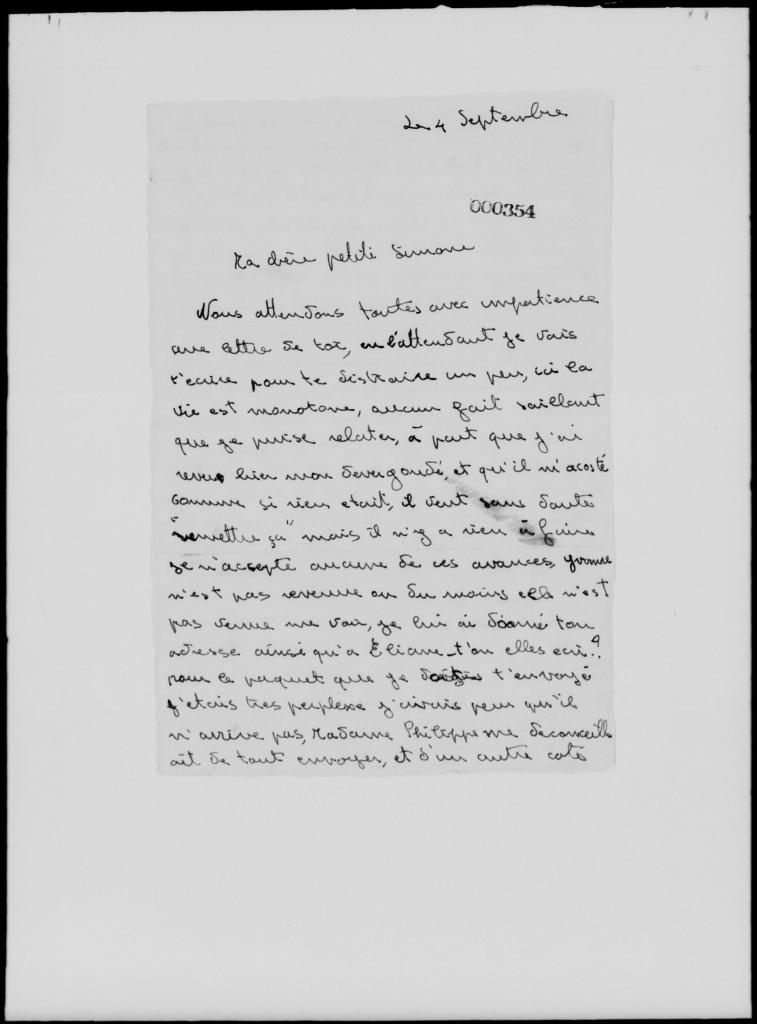 Le 4 Septembre
000354
Ma chère petite Simone
Nous attendons toutes avec impatience
une lettre de toi, en l'attendant je vais
t'ecrire pour te distraire un peu, ici la
vie est monotone, aucun fait saillant
que je puise relater, à part que j'ai
revu hier mon devergondé, et qu'il m'acosté
comme si rien etait, il veut sans doute
"remettre ça" mais il n'y a rien à faire
je n'accepte aucune de ces avances, Yvonne
n'est pas revenue ou du moins elle n'est
pas venue me voir, je lui ai donné ton
adresse ainsi qu'a Eliane t'on elles ecri?
pour le paquet que je t'envoyé
j'etais tres perplexe j'avais peur qu'il
n'arrive pas, Madame Philippe me deconseill
ait de tout envoyer, et d'un autre coté